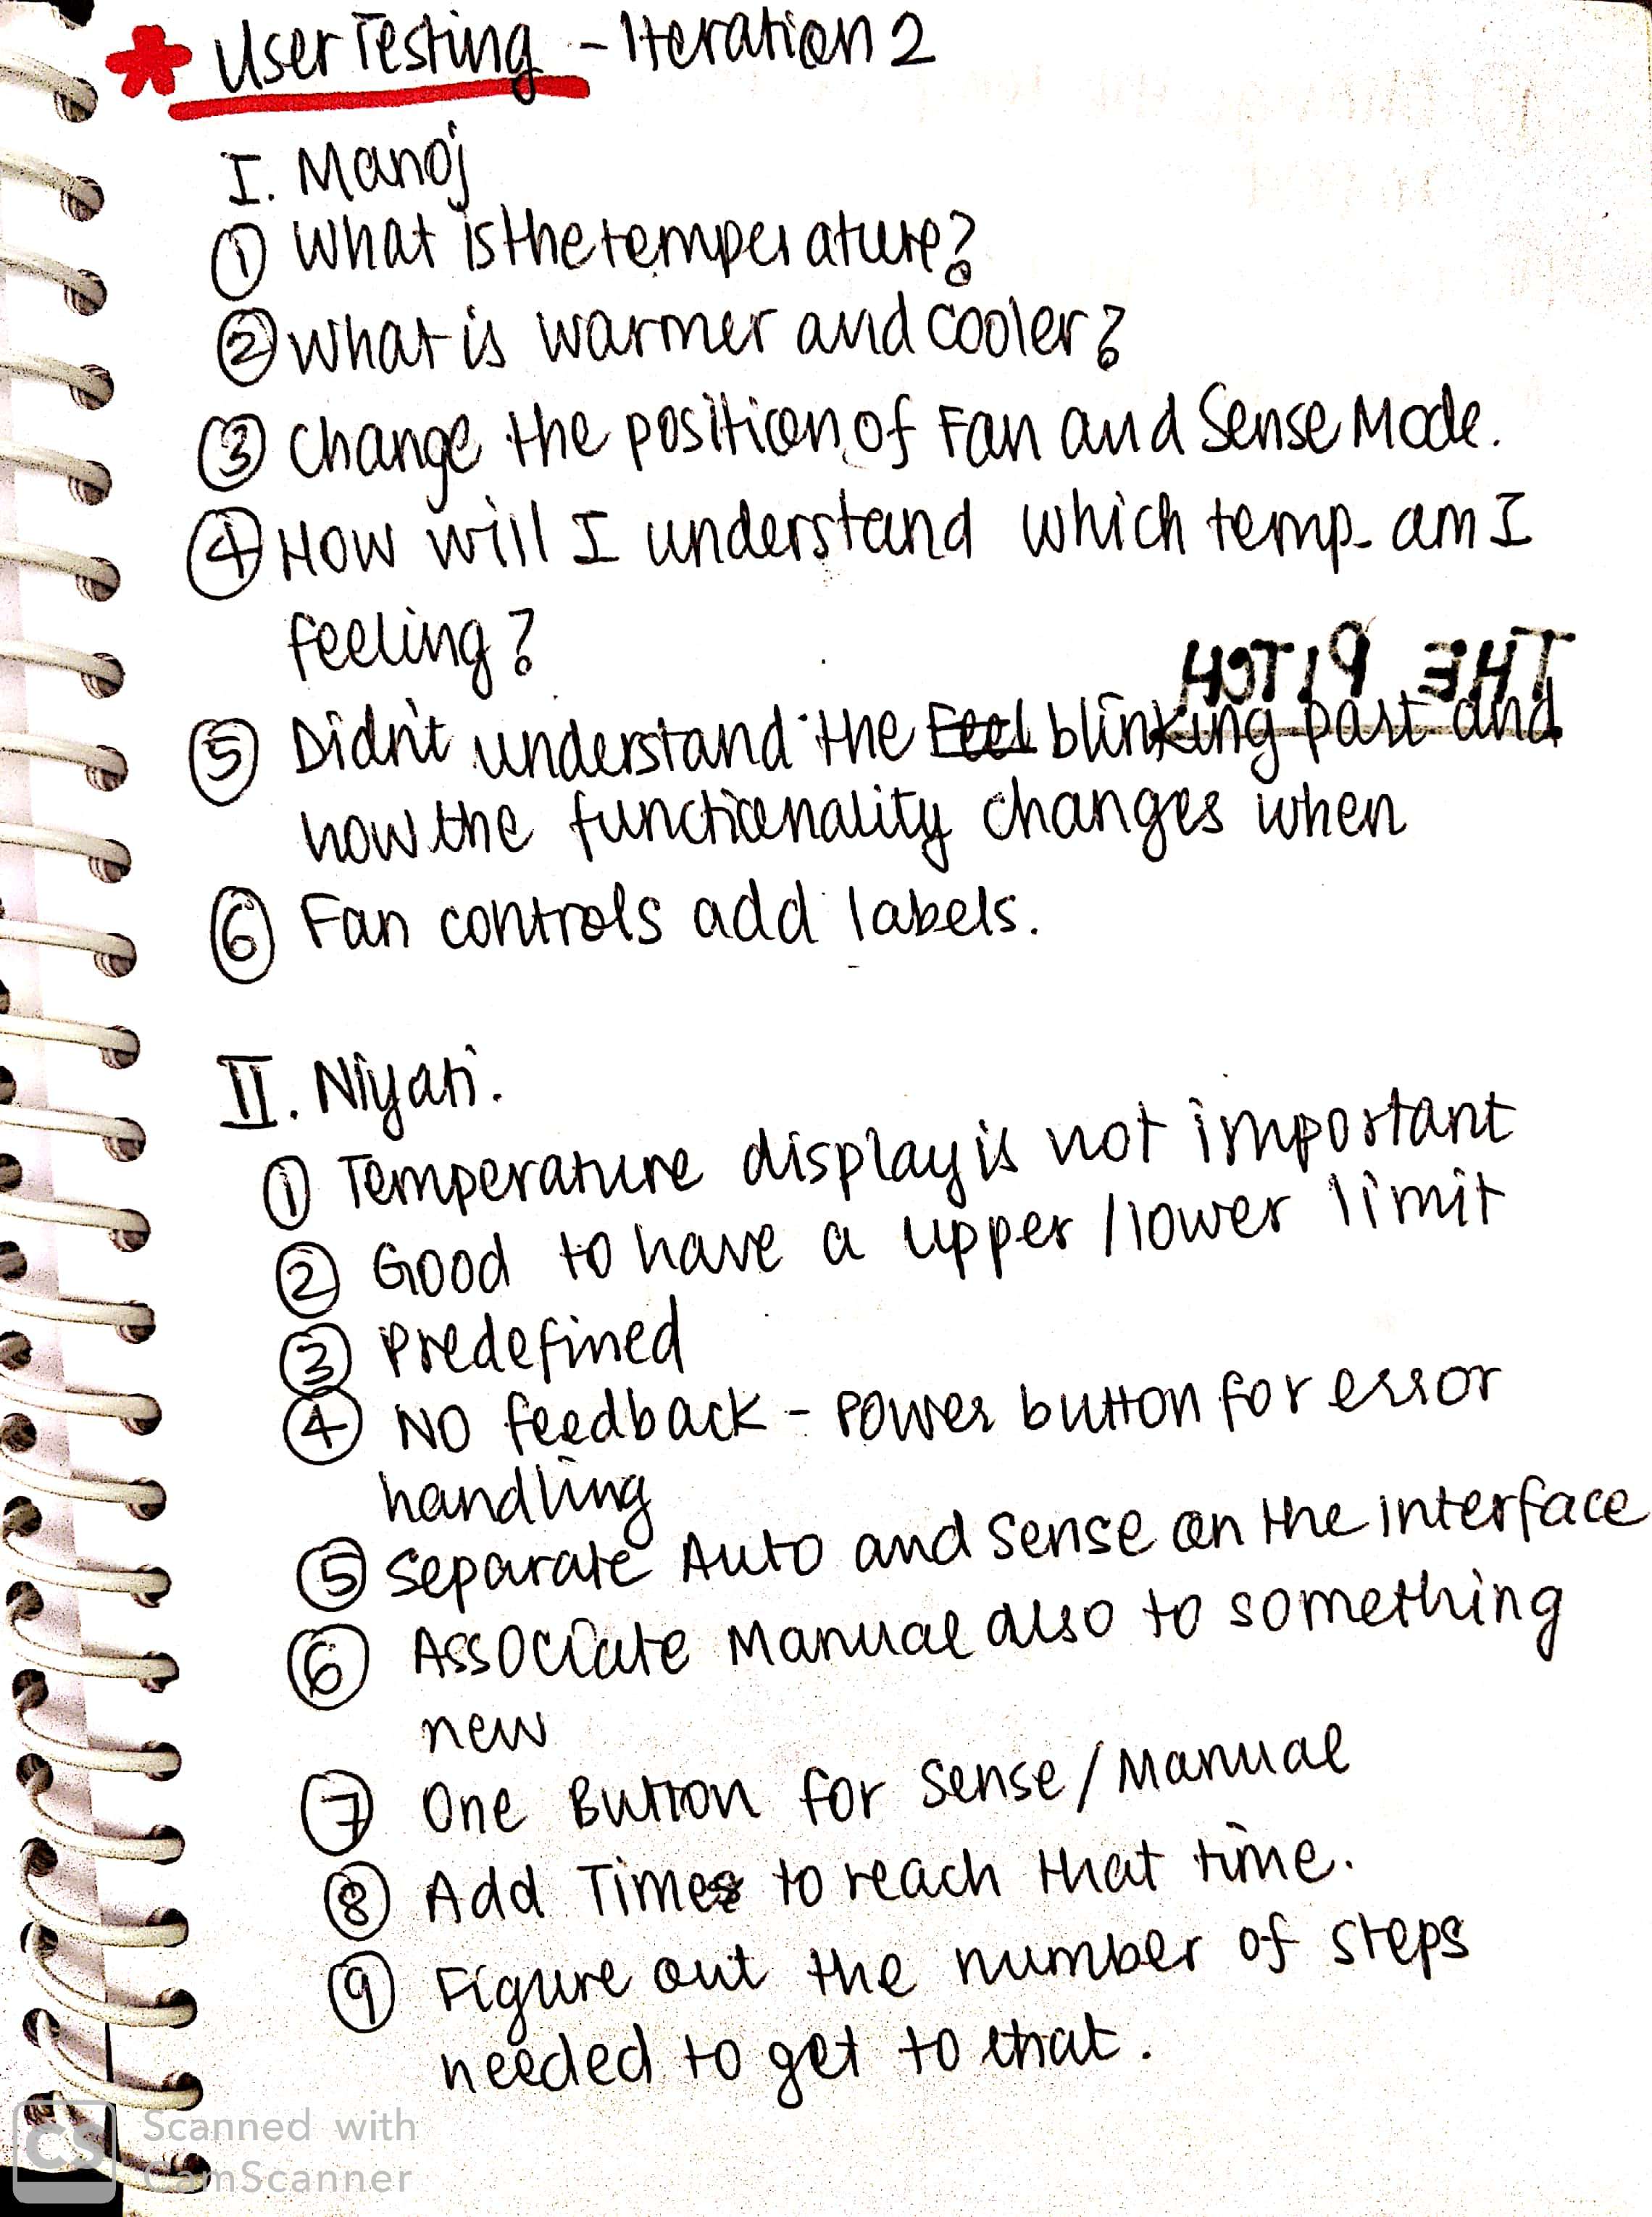 * User Testing - Iteration 2
I. Manoj
① What is the temperature?
② What is warmer and cooler?
③ Change the position of Fan and Sense Mode.
④ How will I understand which temp. am I
feeling?
THE PITCH
⑤ Didn't understand the Feel blinking part and
how the functionality changes when
⑥ Fan controls add labels.
II. Niyati.
① Temperature display is not important
② Good to have a upper / lower limit
③ Predefined
④ No feedback - Power button for error
handling
⑤ Separate Auto and Sense on the interface
⑥ Associate Manual also to something
new
⑦ One Button for Sense / Manual
⑧ Add Times to reach that time.
⑨ Figure out the number of steps
needed to get to that.
CS Scanned with
CamScanner